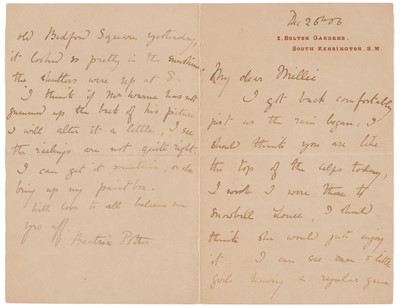 Dec 26th 06
2, BOLTON GARDENS,
SOUTH KENSINGTON. S.W.
My dear Millie
I got back comfortably
just as the rain began, I
should think you are like
the top of the alps today,
I wish I were there to
snowball Louie, I should
think she would just enjoy
it I can see some little
girls having a regular game
old Bedford Square yesterday,
it looked so pretty in the sunshine
the shutters were up at 8.
I think if Mr Warne has not
gummed up the back of his picture
I will alter it a little, I see
the railings are not quite right
I can get it
bring up my paint box.
with love to all believe me
yrs aff
Beatrix Potter